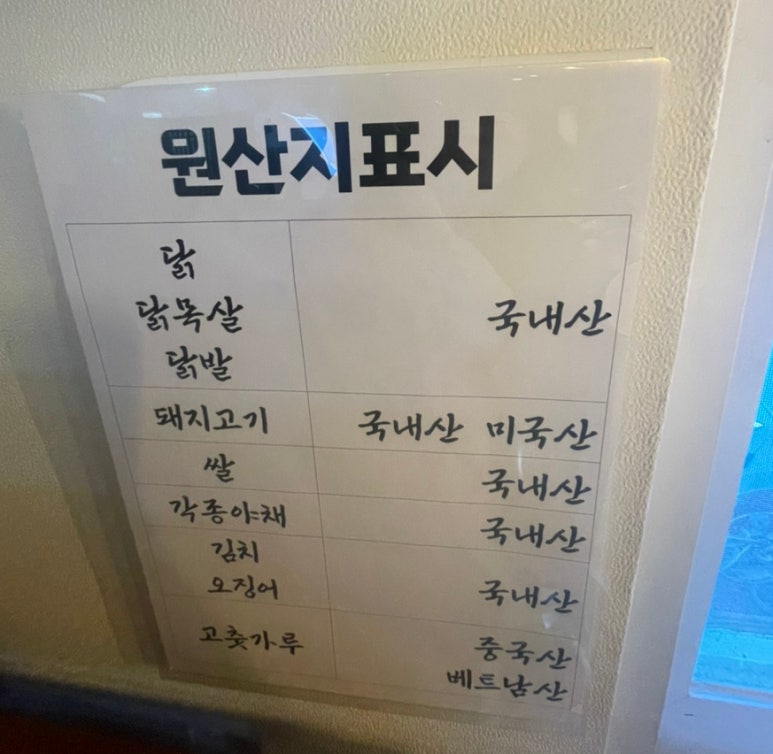 원산지표시
닭
닭목살 국내산
닭발
돼지고기 국내산 미국산
쌀 국내산
각종야채 국내산
김치
오징어 국내산
고춧가루 중국산
베트남산